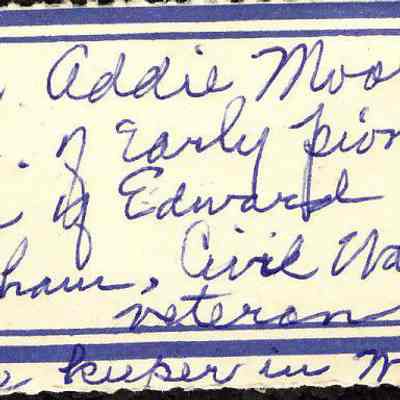 Addie Moo
. of Early pion
of Edward
ham, Civil Wa
veteran
keeper in W